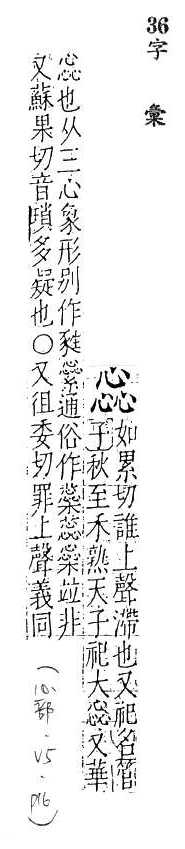 36
字彙
惢
如累切誰上聲滯也又祀名管
子秋至禾熟天子祀大惢又華
惢也从三心象形別作甤繠通俗作蘂蕊橤竝非
又蘇果切音瑣多疑也〇又徂委切罪上聲義同
(心部·V5·P16)